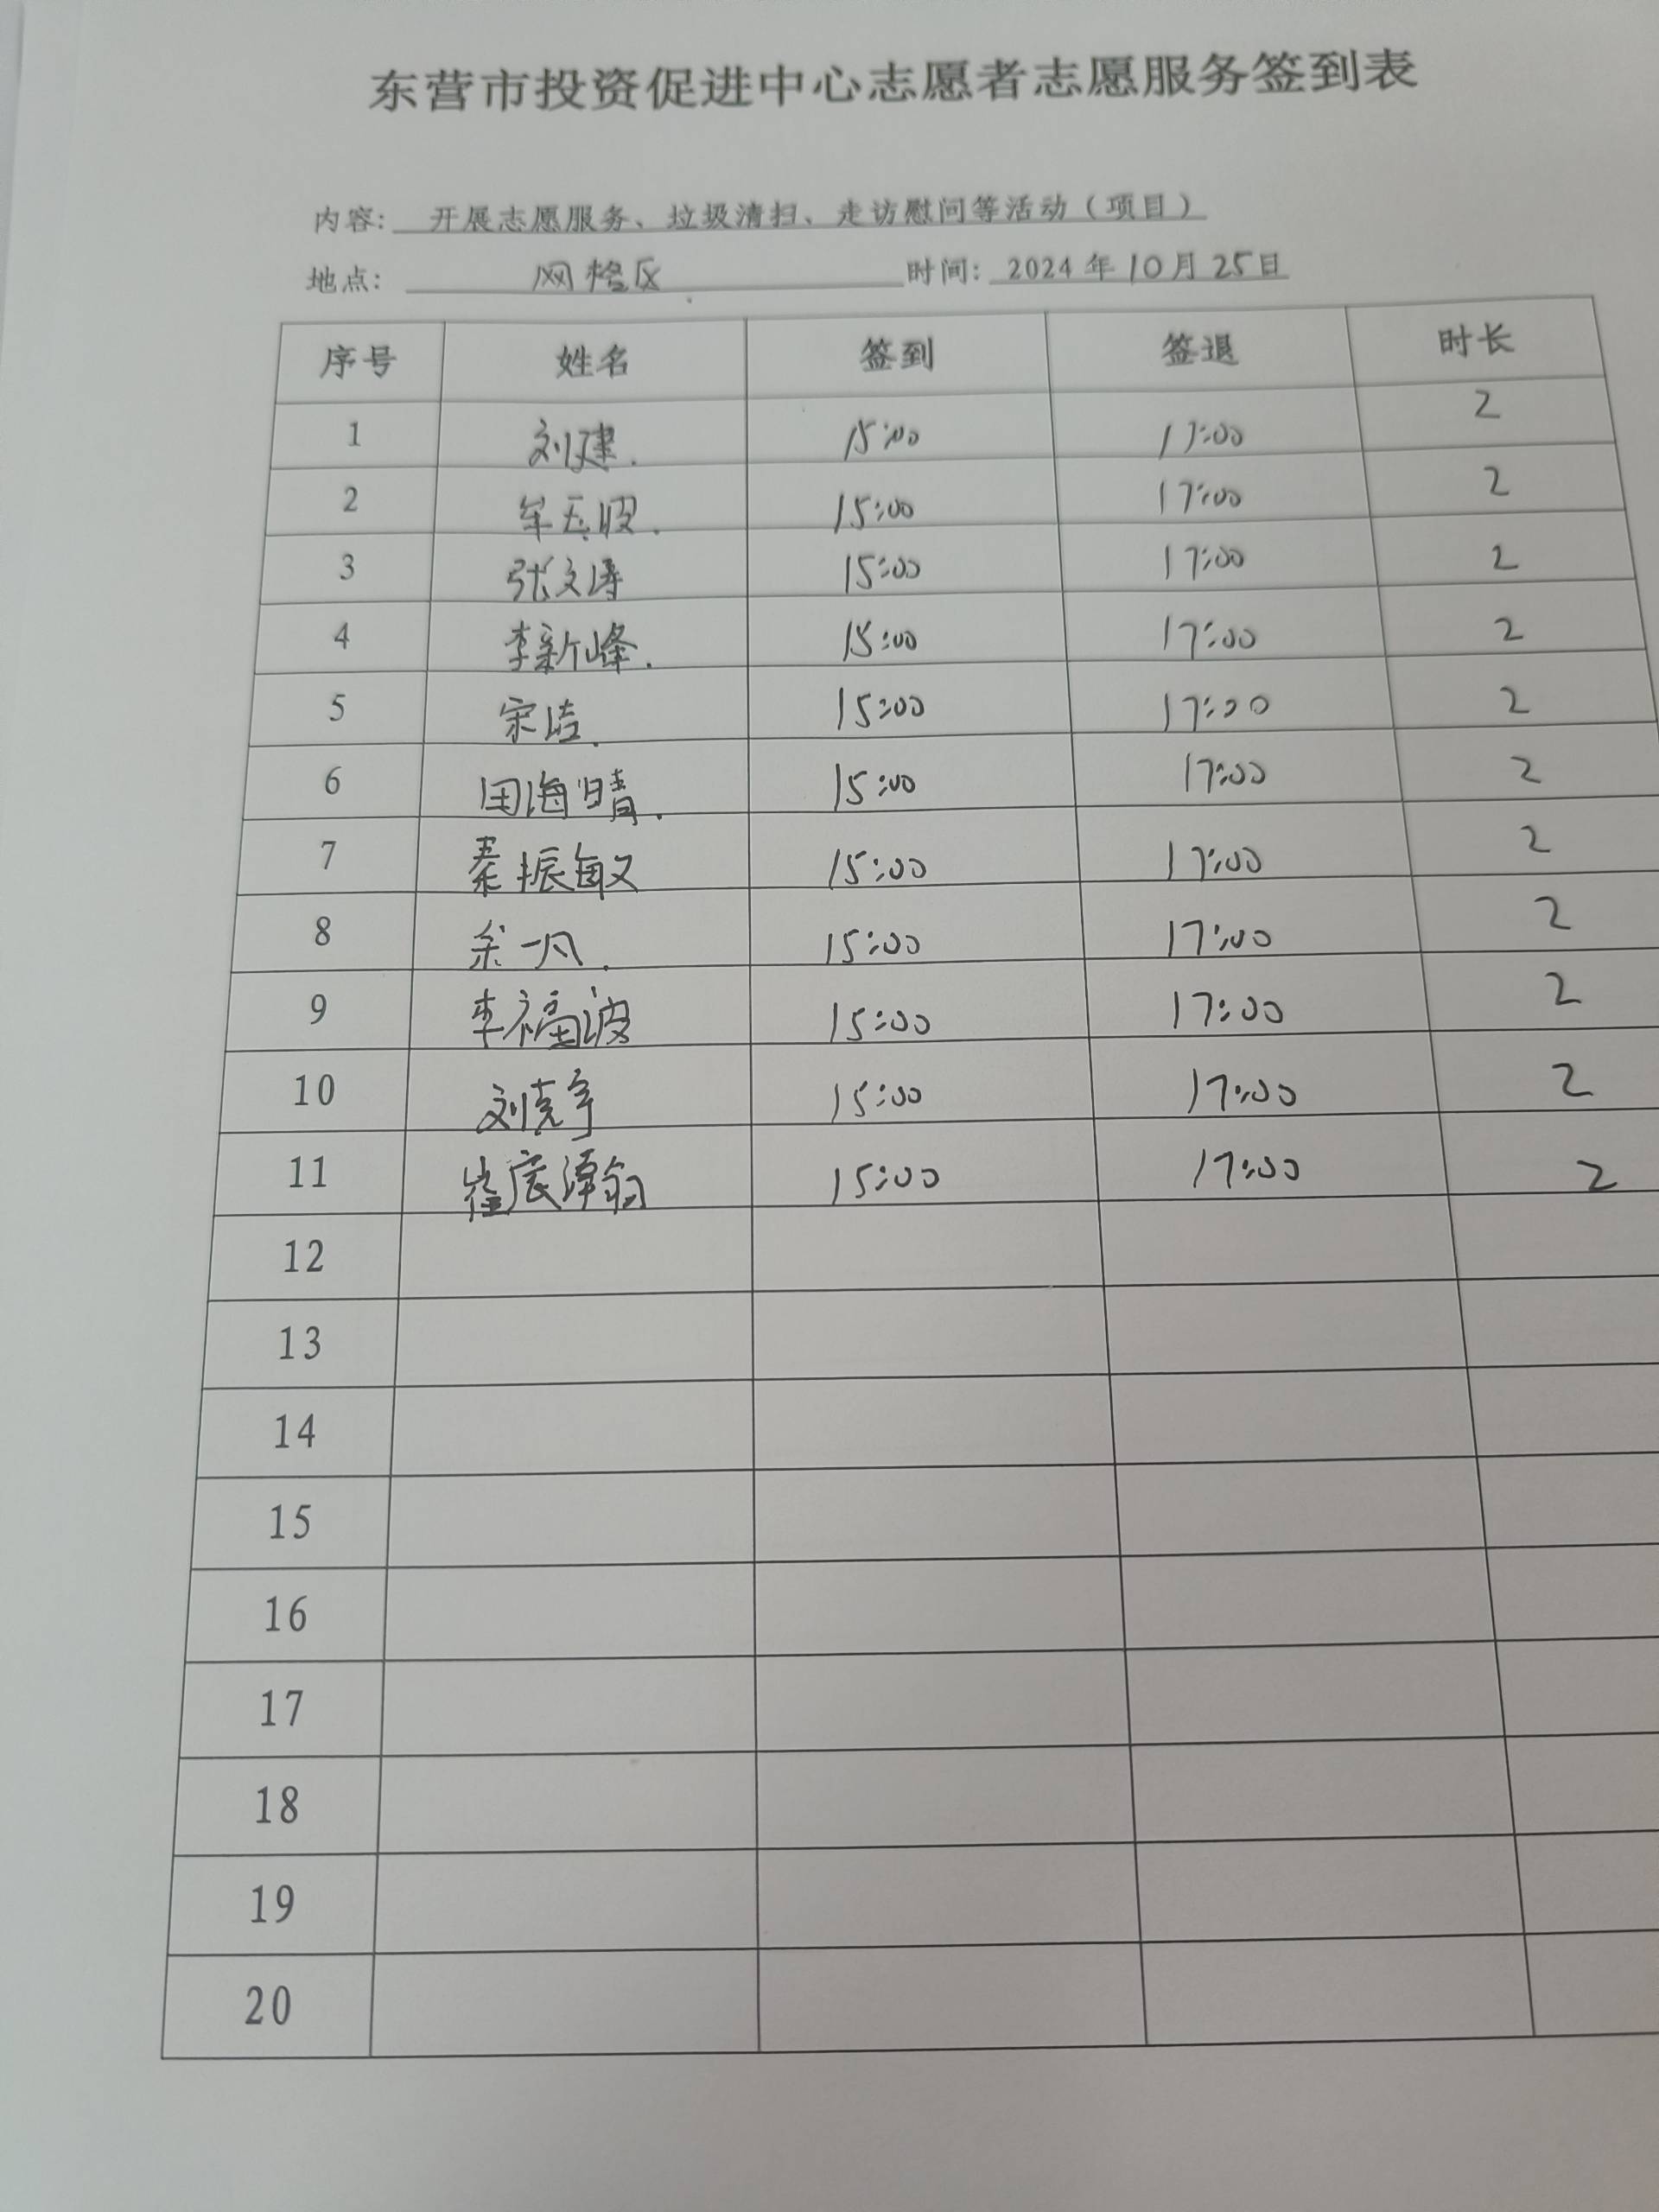 东营市投资促进中心志愿者志愿服务签到表
内容: 开展志愿服务、垃圾清扫、走访慰问等活动（项目）
地点: 网格区 时间: 2024年10月25日
序号 姓名 签到 签退 时长
1 刘建. 15:00 17:00 2
2 15:00 17:00 2
3 张文涛 15:00 17:00 2
4 李新峰. 15:00 17:00 2
5 宋洁. 15:00 17:00 2
6 田海晴. 15:00 17:00 2
7 秦振敏 15:00 17:00 2
8 余一凡. 15:00 17:00 2
9 李福波 15:00 17:00 2
10 刘克宇 15:00 17:00 2
11 15:00 17:00 2
12
13
14
15
16
17
18
19
20